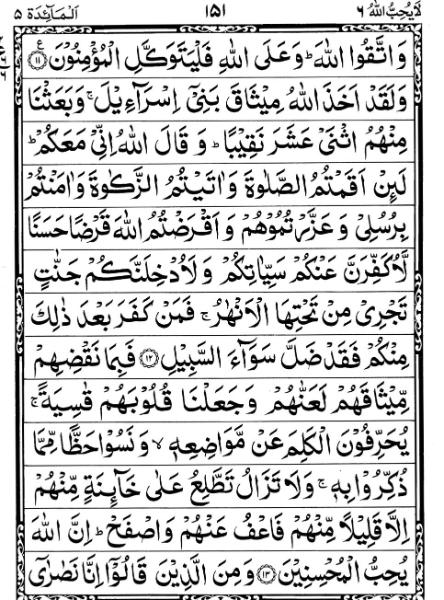 لَا يُحِبُّ اللهُ ٦ ١٥١ اَلْمَآئِدَة ٥
وَاتَّقُوا اللهَ ؕ وَعَلَى اللهِ فَلْيَتَوَكَّلِ الْمُؤْمِنُوْنَ ﴿۱۱﴾
وَلَقَدْ اَخَذَ اللهُ مِيْثَاقَ بَنِيْۤ اِسْرَآءِيْلَ ۚ وَبَعَثْنَا
مِنْهُمُ اثْنَيْ عَشَرَ نَقِيْبًا ؕ وَقَالَ اللهُ اِنِّيْ مَعَكُمْ ؕ
لَئِنْ اَقَمْتُمُ الصَّلٰوةَ وَاٰتَيْتُمُ الزَّكٰوةَ وَاٰمَنْتُمْ
بِرُسُلِيْ وَعَزَّرْتُمُوْهُمْ وَاَقْرَضْتُمُ اللهَ قَرْضًا حَسَنًا
لَّاُكَفِّرَنَّ عَنْكُمْ سَيِّاٰتِكُمْ وَلَاُدْخِلَنَّكُمْ جَنّٰتٍ
تَجْرِيْ مِنْ تَحْتِهَا الْاَنْهٰرُ ۚ فَمَنْ كَفَرَ بَعْدَ ذٰلِكَ
مِنْكُمْ فَقَدْ ضَلَّ سَوَآءَ السَّبِيْلِ ﴿۱۲﴾ فَبِمَا نَقْضِهِمْ
مِّيْثَاقَهُمْ لَعَنّٰهُمْ وَجَعَلْنَا قُلُوْبَهُمْ قٰسِيَةً ۚ
يُحَرِّفُوْنَ الْكَلِمَ عَنْ مَّوَاضِعِهٖ ۙ وَنَسُوْا حَظًّا مِّمَّا
ذُكِّرُوْا بِهٖ ۚ وَلَا تَزَالُ تَطَّلِعُ عَلٰى خَآئِنَةٍ مِّنْهُمْ
اِلَّا قَلِيْلًا مِّنْهُمْ فَاعْفُ عَنْهُمْ وَاصْفَحْ ؕ اِنَّ اللهَ
يُحِبُّ الْمُحْسِنِيْنَ ﴿۱۳﴾ وَمِنَ الَّذِيْنَ قَالُوْۤا اِنَّا نَصٰرٰۤى